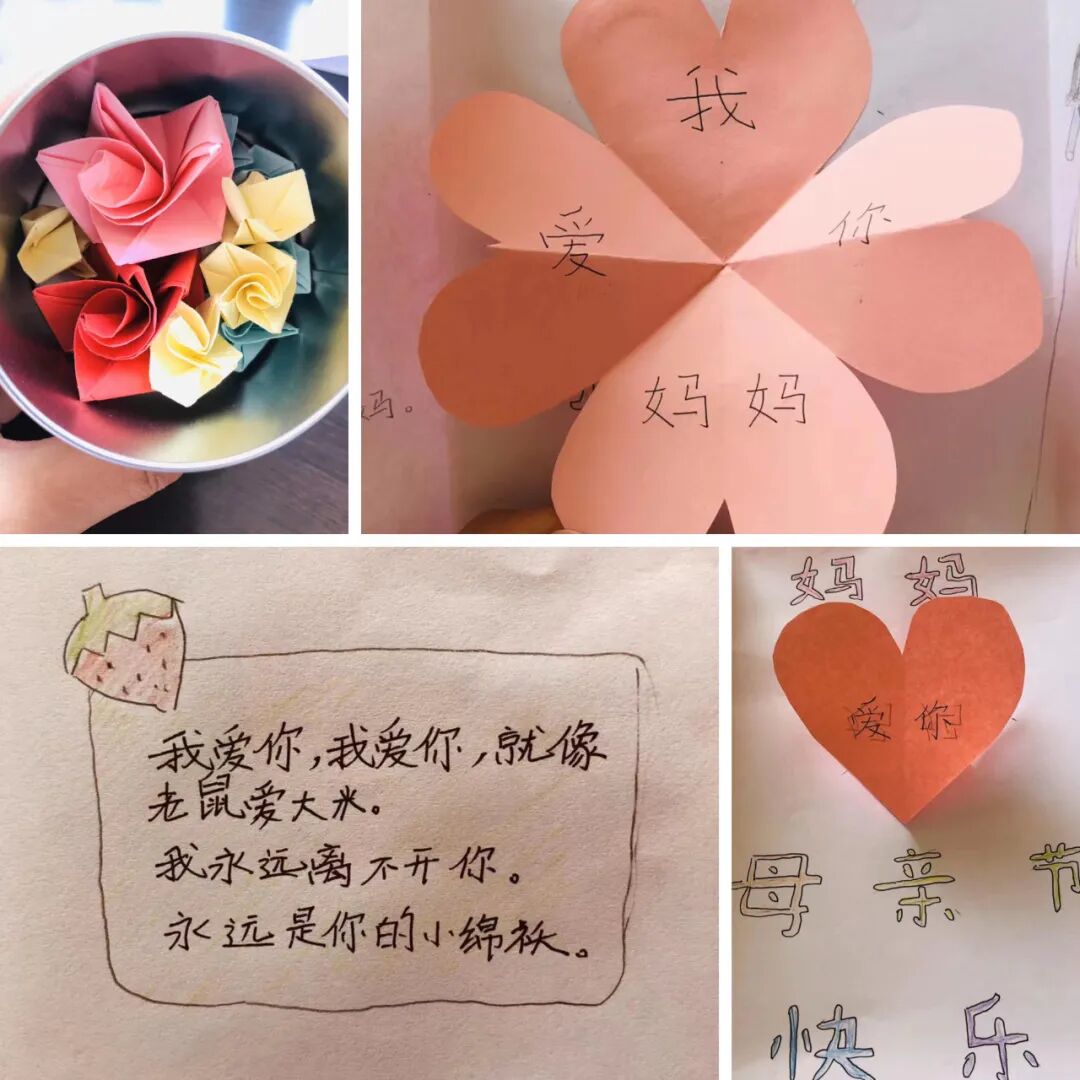 我
爱 你
妈妈
妈。
我爱你,我爱你,就像
老鼠爱大米。
我永远离不开你。
永远是你的小绵袄。
妈妈
爱你
母亲节
快乐